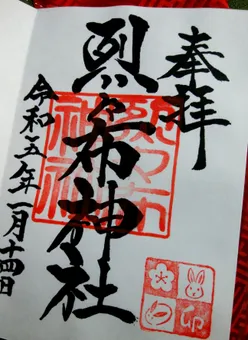 奉拝
烈々布神社
令和五年一月十四日
烈々布神社
卯